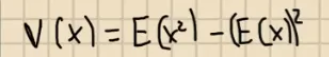 V(x) = E(x²) - (E(x))²